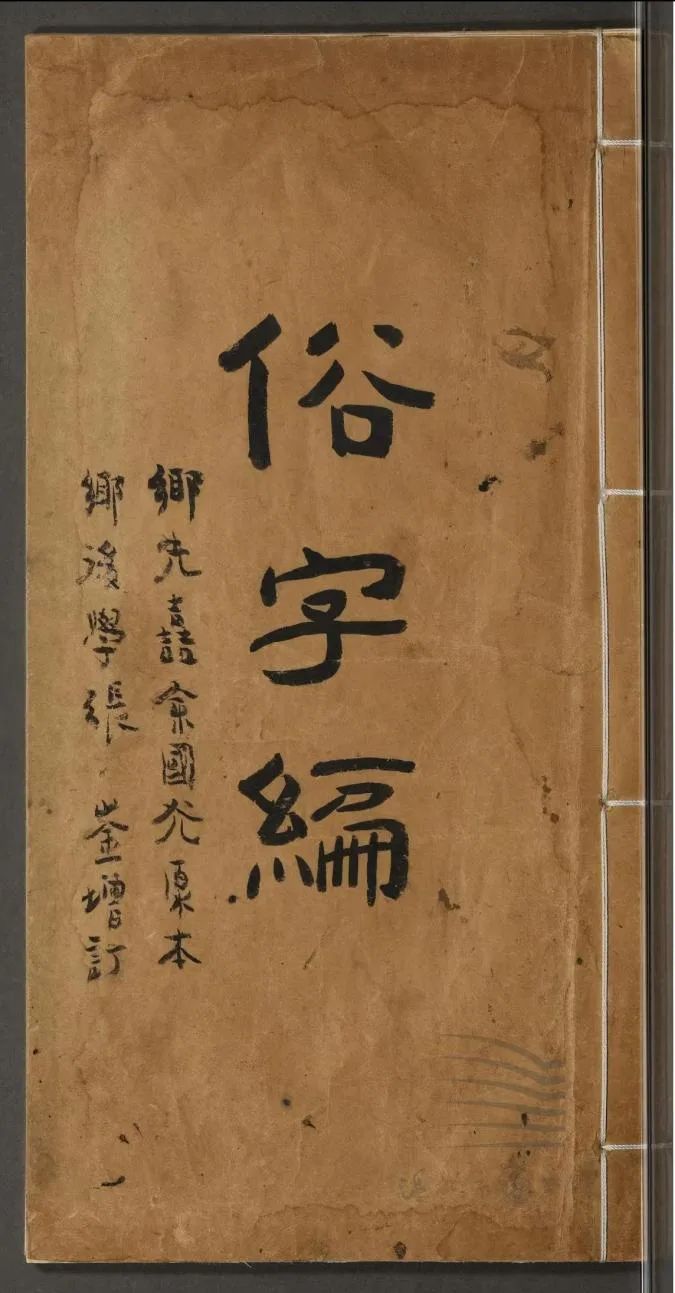 俗字編
鄉先嚞余國光原本
鄉後學張崟增訂